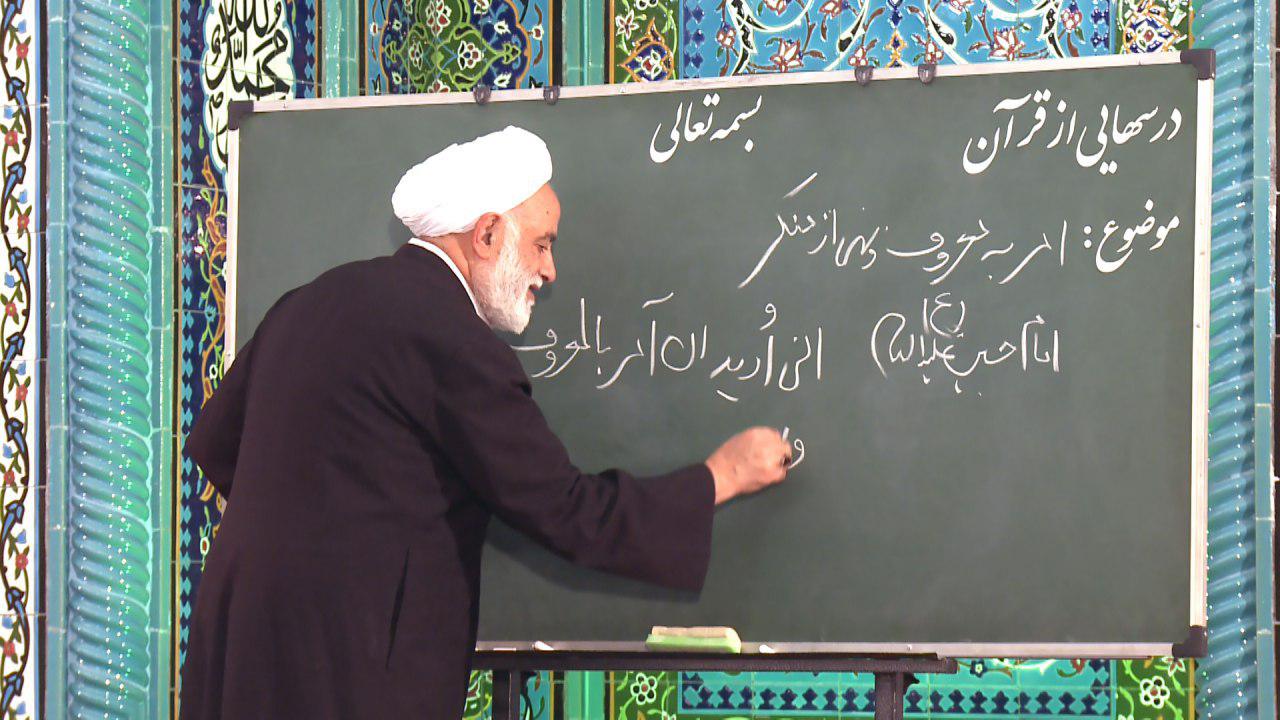 درسهایی از قرآن
بسمه تعالی
موضوع: امر به معروف ونهی از منکر
امام حسین علیه السلام (ع)
انی اُرید ان آمر بالمعروف
و